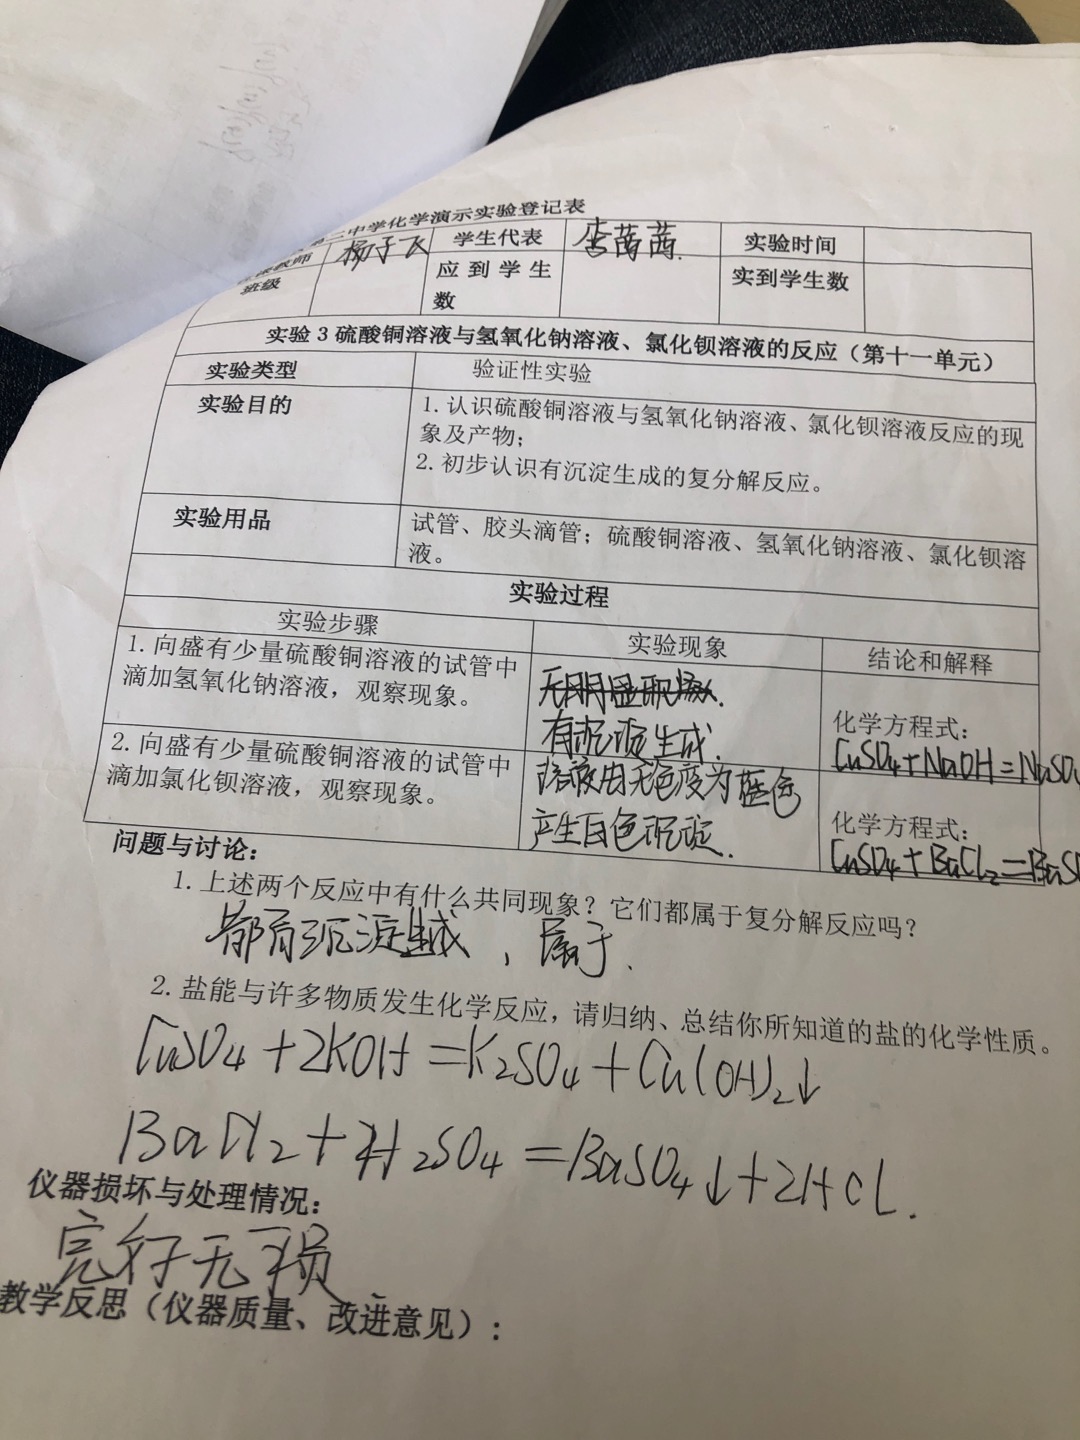 二中学化学演示实验登记表
教师 杨子飞 学生代表 李茜茜. 实验时间
班级 应到学生数 实到学生数
实验3 硫酸铜溶液与氢氧化钠溶液、氯化钡溶液的反应（第十一单元）
实验类型 验证性实验
实验目的 1.认识硫酸铜溶液与氢氧化钠溶液、氯化钡溶液反应的现
象及产物；
2.初步认识有沉淀生成的复分解反应。
实验用品 试管、胶头滴管；硫酸铜溶液、氢氧化钠溶液、氯化钡溶
液。
实验过程
实验步骤 实验现象 结论和解释
1.向盛有少量硫酸铜溶液的试管中
滴加氢氧化钠溶液，观察现象。
无明显现象.
有沉淀生成.
溶液由无色变为蓝色
化学方程式：
CuSO₄+NaOH=NaSO₄
2.向盛有少量硫酸铜溶液的试管中
滴加氯化钡溶液，观察现象。
产生白色沉淀.
化学方程式：
CuSO₄+BaCl₂=BaSO
问题与讨论：
1.上述两个反应中有什么共同现象？它们都属于复分解反应吗？
都有沉淀生成，属于.
2.盐能与许多物质发生化学反应，请归纳、总结你所知道的盐的化学性质。
CuSO₄+2KOH=K₂SO₄+Cu(OH)₂↓
BaCl₂+H₂SO₄=BaSO₄↓+2HCl.
仪器损坏与处理情况：
完好无损.
教学反思（仪器质量、改进意见）：